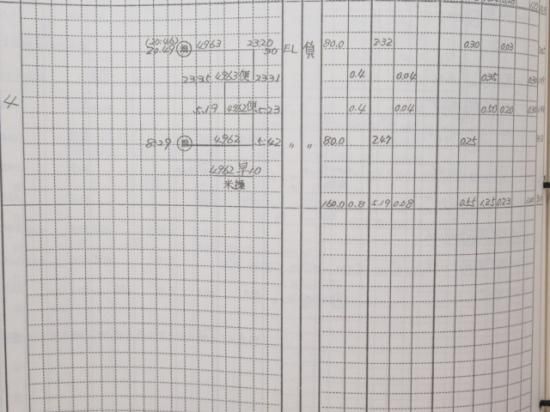 (20:46)
20:49 4963 2320 30 EL 貨 80.0 2.32 0.30 0.03
2335 4963便 2331 0.4 0.04 0.35 0.30
4
5.19 4962便 5.23 0.4 0.04 0.50 0.20 0.30
8:29 4962 5.42 〃 〃 80.0 2.47 0.25
4962早10
米操
160.0 0.8 5.19 0.08 0.55 1.25 0.23